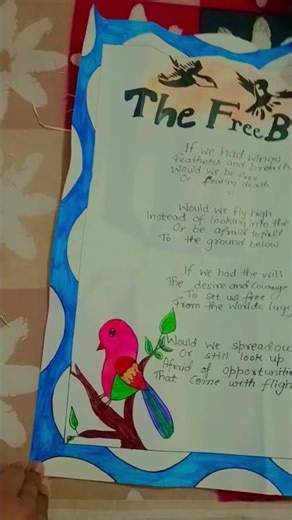 The Free B
If we had wings
Feathers and
Would we be free
Or fearing death
Would we fly high
Instead of looking into the
Or be afraid to
To the ground below
If we had the will
The desire and Courage
To set us free
From the
Would we spread ow
Or still look up
Afraid of opportunitie
That come with fligh